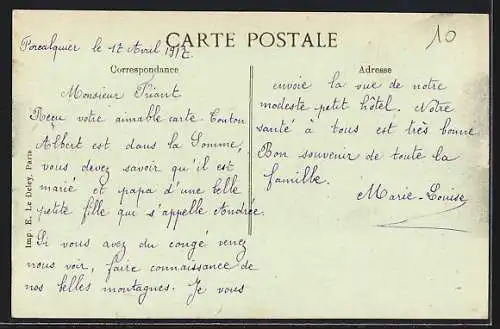 Forcalquier le 17 Avril 1917
CARTE POSTALE
10
Correspondance
Adresse
Monsieur Priant
Reçu votre aimable carte Tonton
Albert est dans la Somme,
vous devez savoir qu'il est
marié et papa d'une belle
petite fille qui s'appelle Andrée.
Si vous avez du congé venez
nous voir, faire connaissance de
nos belles montagnes. Je vous
envoie la vue de notre
modeste petit hôtel. Notre
santé à tous est très bonne
Bon souvenir de toute la
famille.
Marie-Louise
Imp. E. Le Deley, Paris